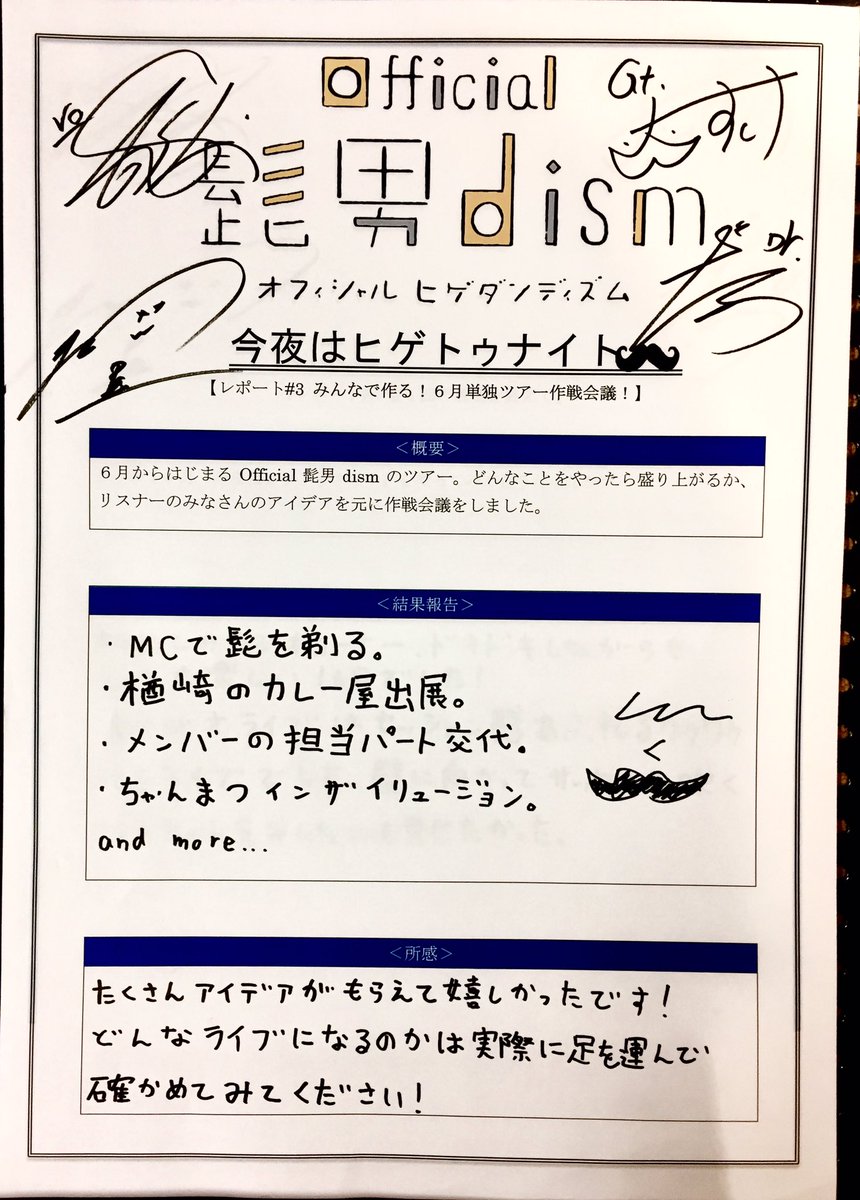 Official
Gt.
髭男dism
Dr.
オフィシャル ヒゲダンディズム
今夜はヒゲトゥナイト
【レポート#3 みんなで作る！６月単独ツアー作戦会議！】
＜概要＞
６月からはじまる Official 髭男 dism のツアー。どんなことをやったら盛り上がるか、
リスナーのみなさんのアイデアを元に作戦会議をしました。
＜結果報告＞
・MCで髭を剃る。
・楢崎のカレー屋出展。
・メンバーの担当パート交代。
・ちゃんまつインザイリュージョン。
and more...
＜所感＞
たくさんアイデアがもらえて嬉しかったです！
どんなライブになるのかは実際に足を運んで
確かめてみてください！